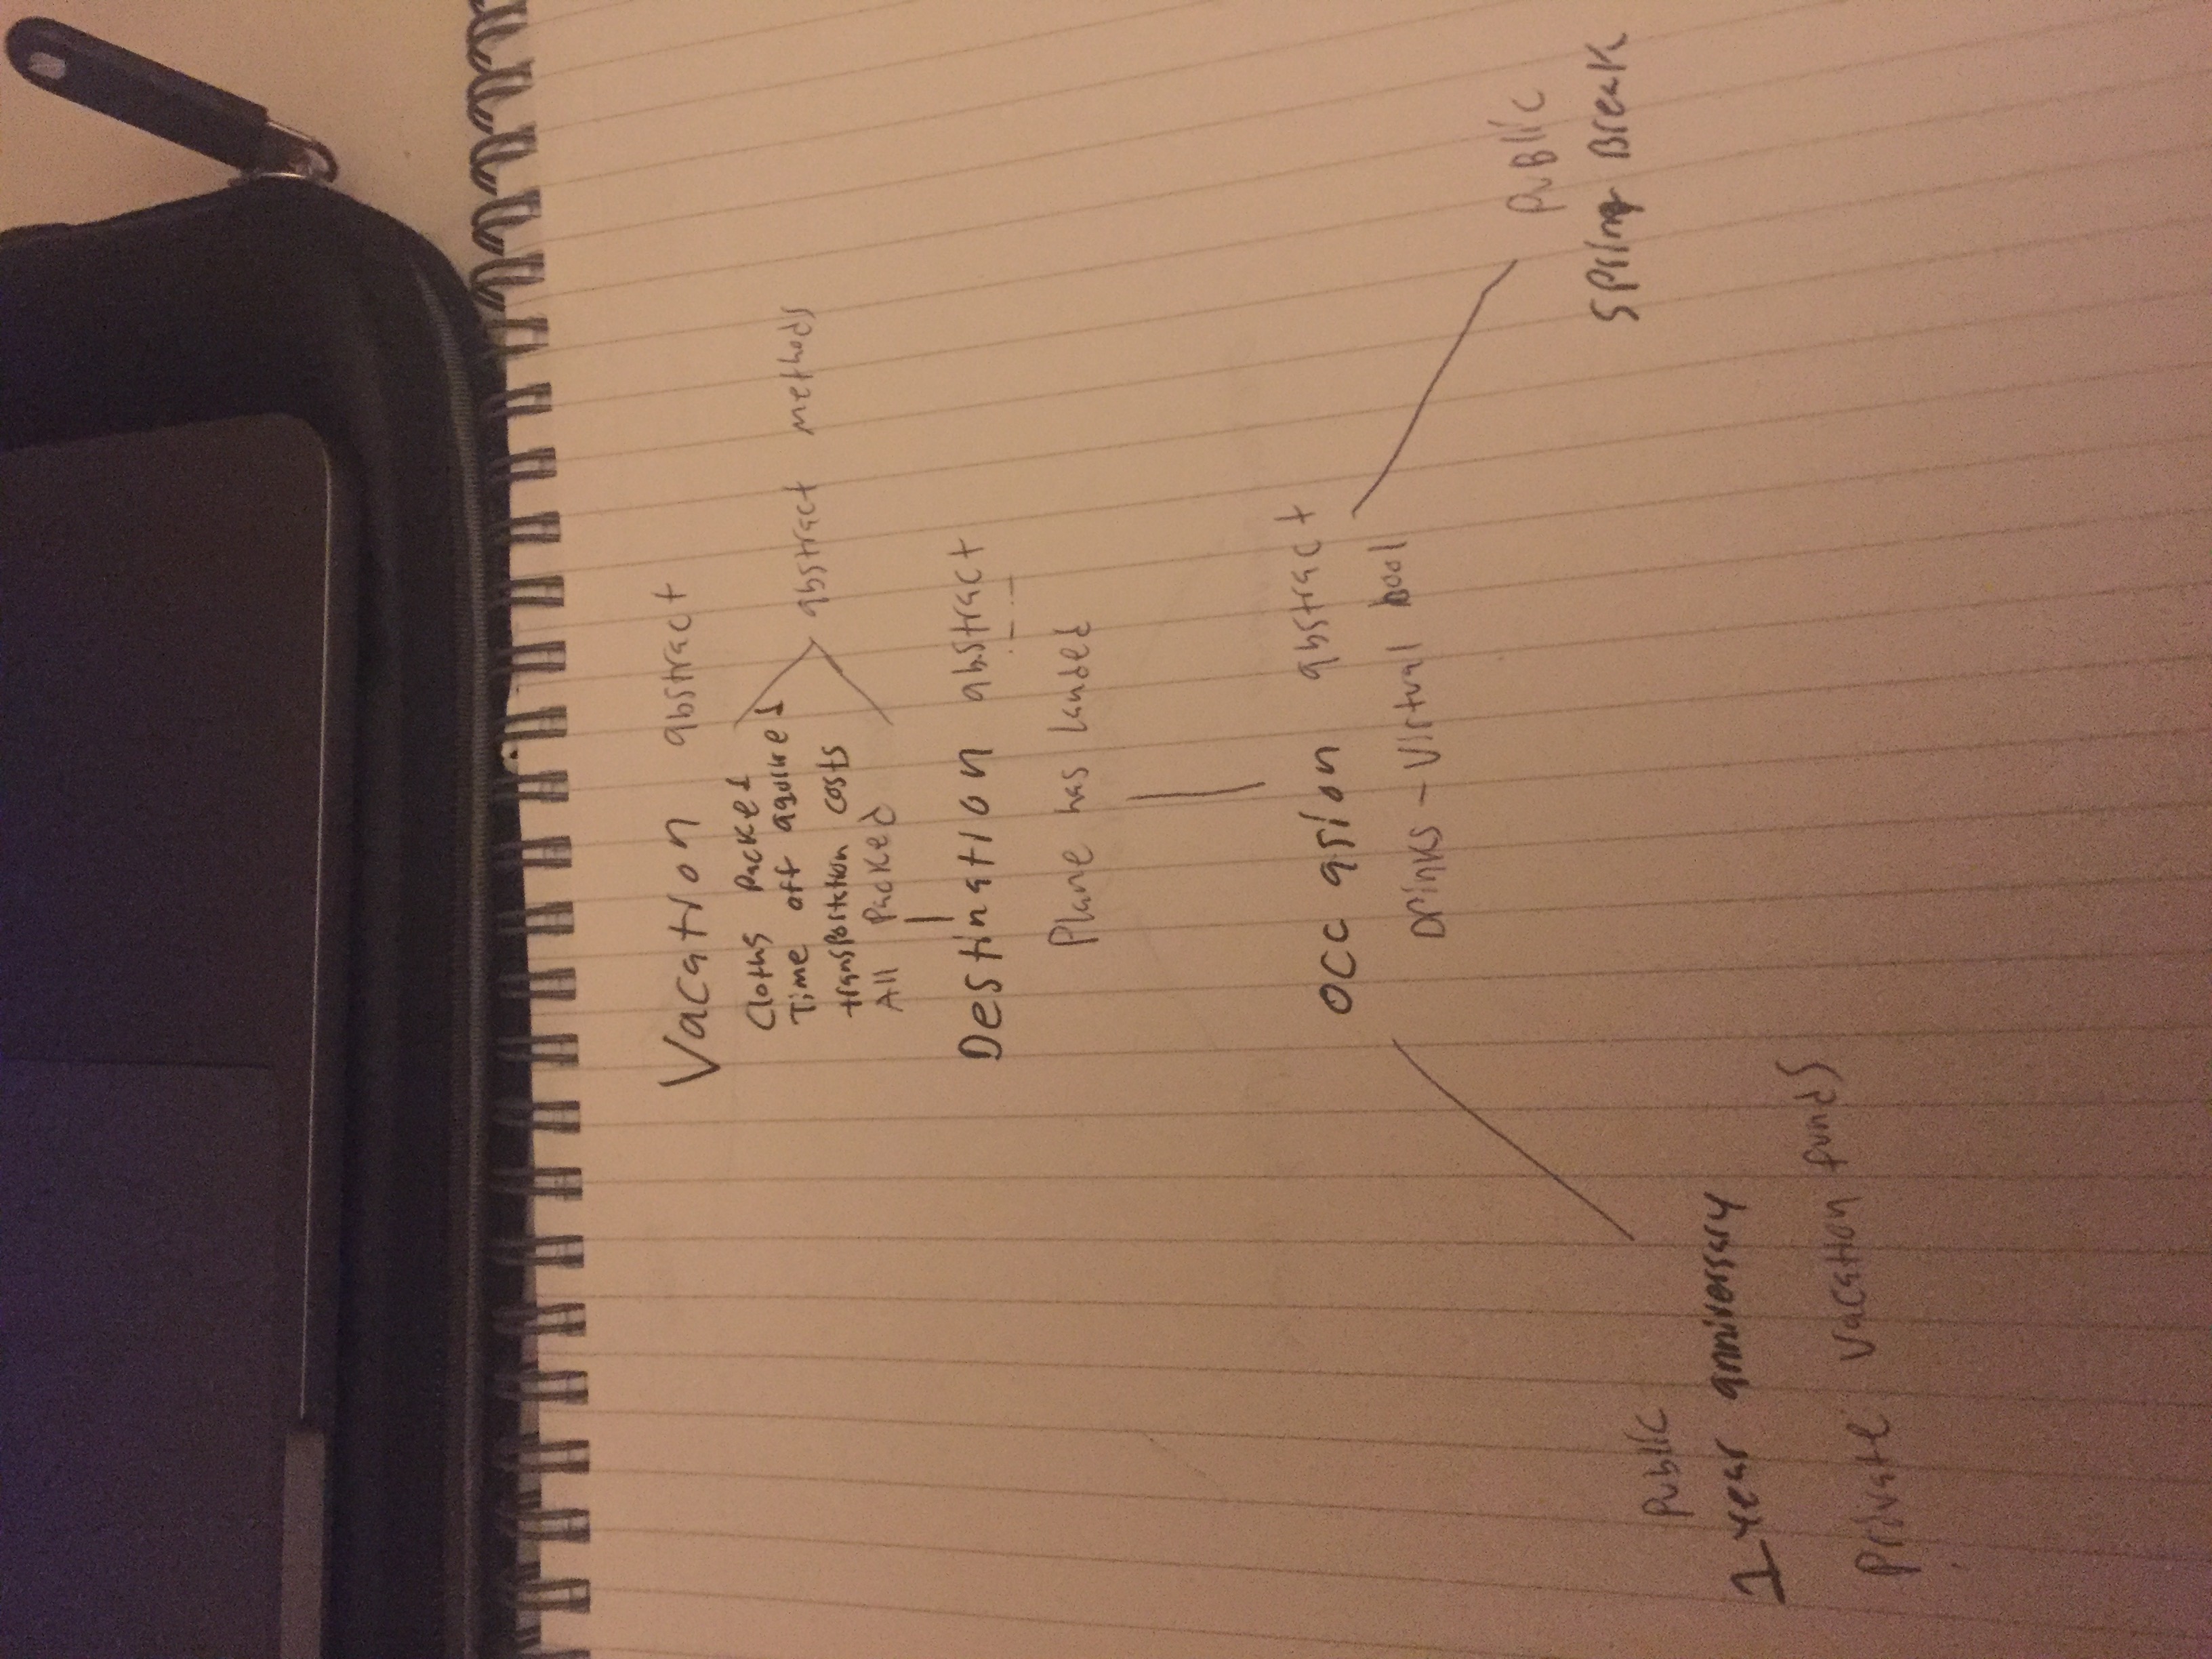 Vacation abstract
Cloths Packed
Time off aquired
transportation costs
All Packed
abstract methods
Destination abstract
Plane has landed
occasion abstract
Drinks - Virtual bool
Public
Spring Break
Public
1 year anniversary
Private vacation funds